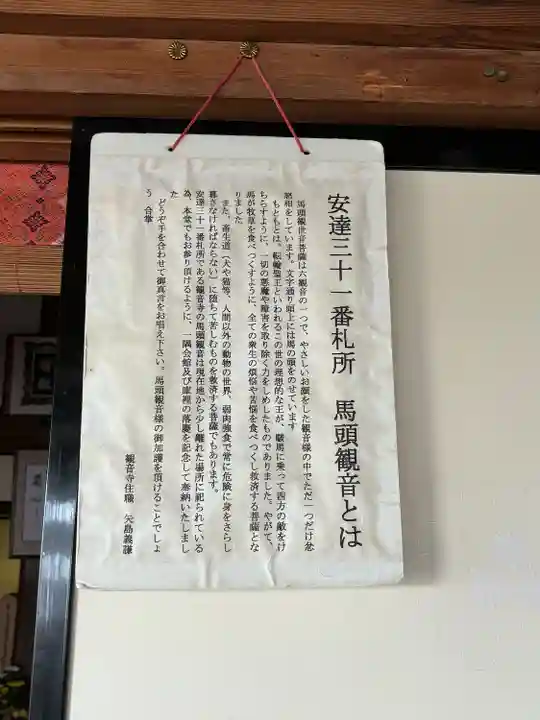 安達三十一番札所　馬頭観音とは
馬頭観世音菩薩は六観音の一つで、やさしいお顔をした観音様の中でただ一つだけ忿
怒相をしています。文字通り頭上には馬の頭をのせています
もともとは、転輪聖王といわれるこの世の理想的な王が、駿馬に乗って四方の敵をけ
ちらすように、一切の悪魔や障害を取り除く力をしめしたものでありました。やがて、
馬が牧草を食べつくすように、全ての衆生の煩悩や苦悩を食べつくし救済する菩薩とな
りました
また、畜生道（犬や猫等、人間以外の動物の世界、弱肉強食で常に危険に身をさらし
暮さなければならない）に堕ちて苦しむものを救済する菩薩でもあります。
安達三十一番札所である観音寺の馬頭観音は現在地から少し離れた場所に祀られている
為、本堂でもお参り頂けるように、一隅会館及び庫裡の落慶を記念して奉納いたしまし
た
どうぞ手を合わせて御真言をお唱え下さい。馬頭観音様の御加護を頂けることでしょ
う　合掌
観音寺住職　矢島義謙